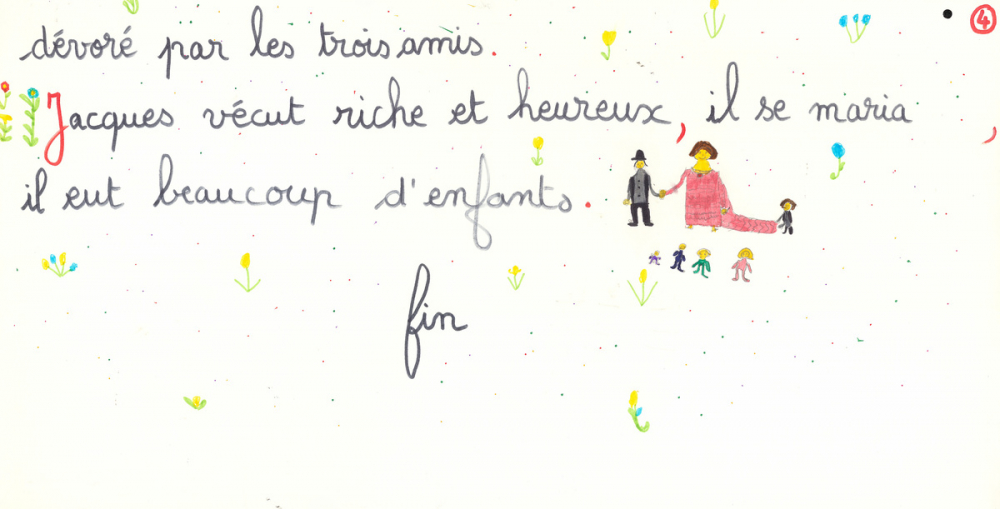 4
dévoré par les trois amis.
Jacques vécut riche et heureux, il se maria,
il eut beaucoup d'enfants.
fin